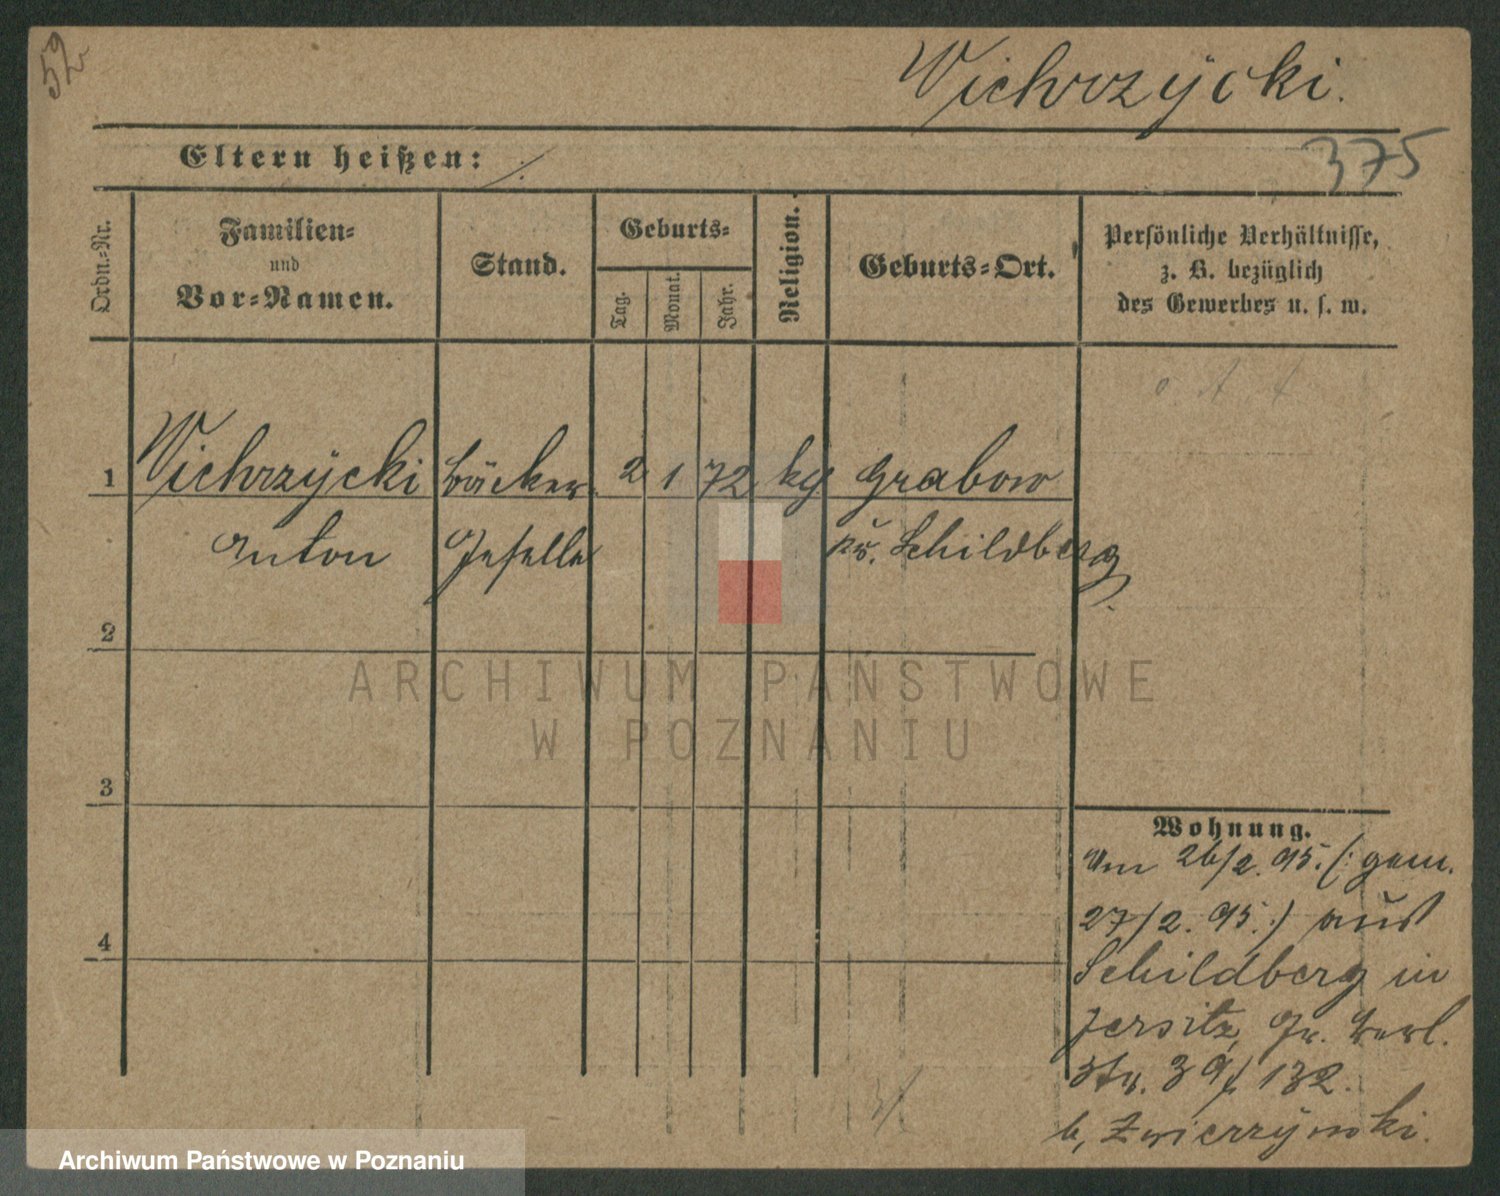 52
Wichrzycki.
375
Eltern heißen: ./.
Ordn.-Nr.
Familien-
und
Vor-Namen.
Stand.
Geburts-
Tag.
Monat.
Jahr.
Religion.
Geburts-Ort.
Persönliche Verhältnisse,
z. B. bezüglich
des Gewerbes u. s. w.
1 Wichrzycki Bäcker 2 1 72 kg Grabow
Anton Geselle Kr. Schildberg
2
ARCHIWUM PAŃSTWOWE
W POZNANIU
3
4
Wohnung.
Am 26/2. 95. (: gem.
27/2. 95 :) aus
Schildberg in
Jersitz, Gr. Berl.
Str. 39/132.
b, Zwierzynski.
Archiwum Państwowe w Poznaniu